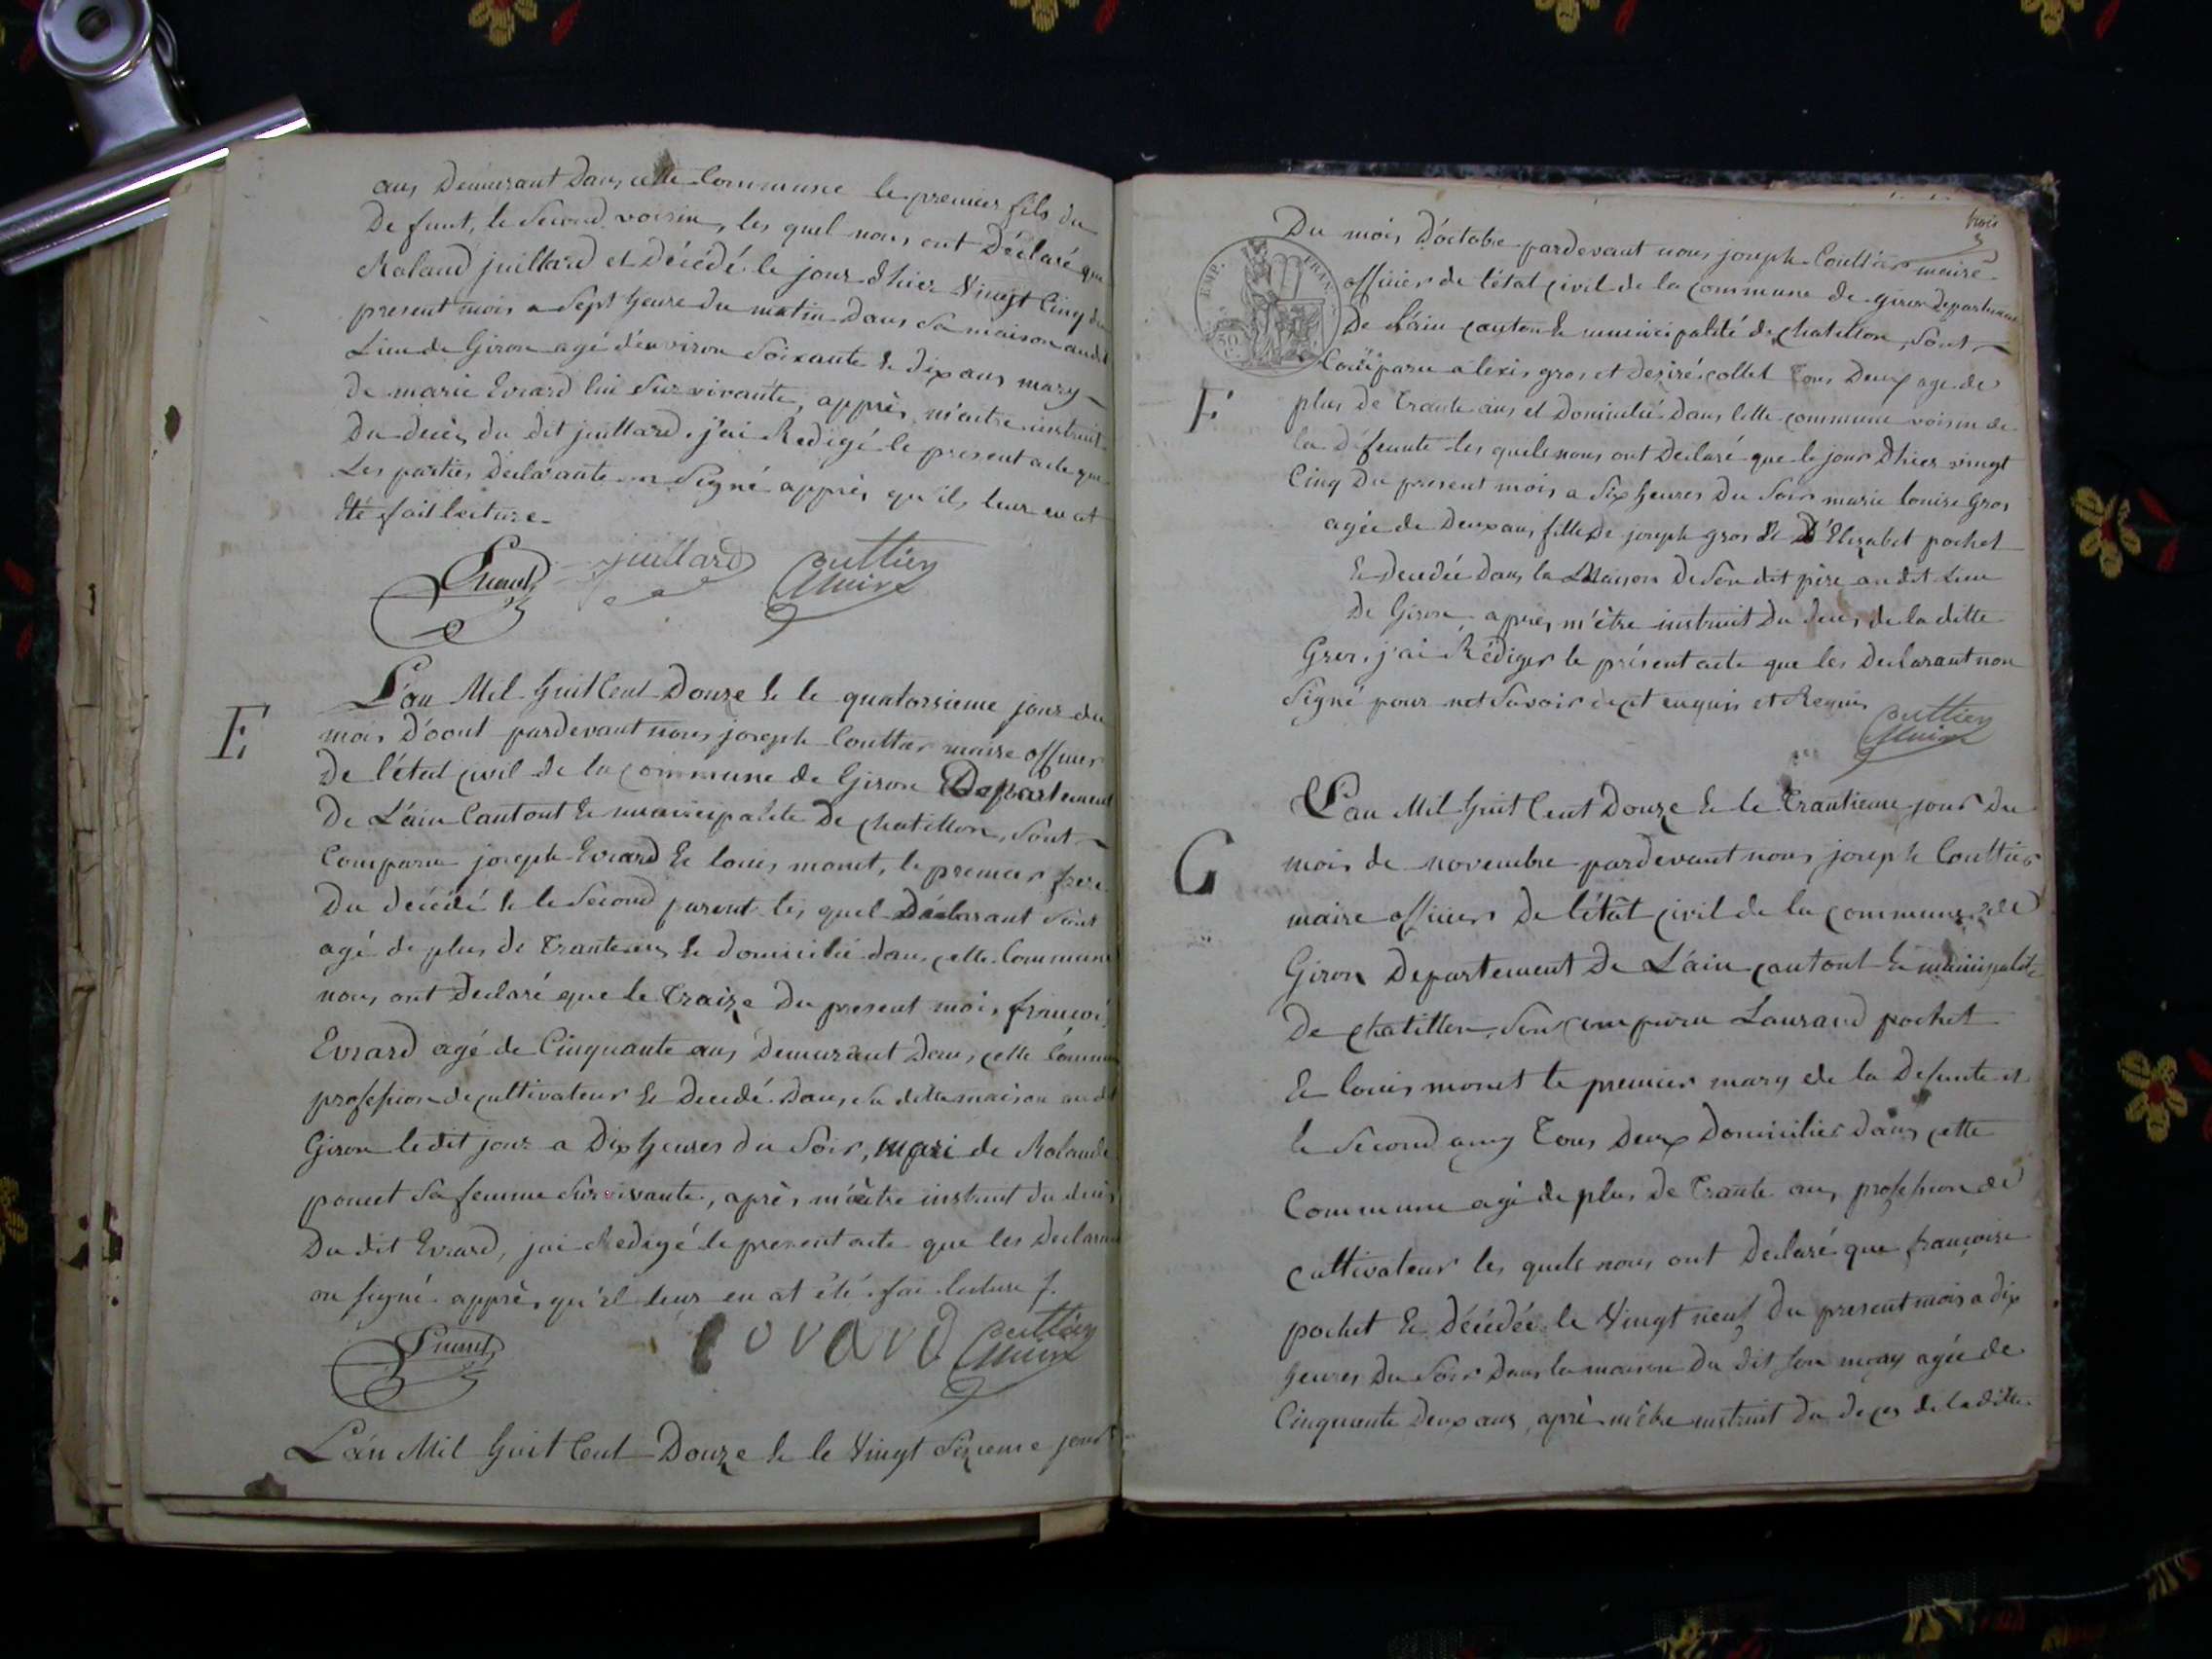 ans Demeurant Dans cette Commune le premier fils du
De funt, le Second voisin, les quel nous ont Déclaré que
Roland juillard et Décédé le jour d'hier Vingt Cinq du
present mois a Sept heure du matin Dans Sa maison audit
Lieu de Giron agé d'environ Soixante & dix ans mary
de marie Evrard lui Survivante, apprès m'aitre instruit
Du decès du dit juillard, j'ai Redigé le present acte que
Les parties Declarante on Signé apprès qu'ils leur en at
été fait lecture
juillard Couttier
Maire
E
L'an Mil huit Cent Douze & le quatorsieme jour du
mois D'oout pardevant nous joseph Couttier maire officier
De l'état civil de la commune de Giron Departement
De L'ain Cantont & municipalité De chatillon, Sont
Comparu joseph Evrard & louis monet, le premier frere
Du décédé & le Second parent les quel Déclarant Sont
agé de plus de Trante ans & domicilié dans cette Commune
nous ont Declaré que le Traize Du present mois françoi
Evrard agé de Cinquante ans Demurant Dans cette Commune
profession de cultivateur & Decedé Dans Sa ditte maison audit
Giron le dit jour a Dix heures du Soir, mari de Rolande
poncet Sa femme Survivante, après m'aêtre instruit du decès
Du dit Evrard, jai Redigé le present acte que les Declarant
on signé apprès qu'il leur en at été fai lecture
evvard Couttier
Maire
L'an Mil huit Cent Douze & le Vingt Sizieme jour
trois
EMP. FRAN.
50
C
Du mois D'octobre pardevant nous joseph Couttier maire
officier de l'état civil de la commune de giron departement
De L'ain canton & municipalité de chatillon, Sont
Comparu alexis gros et desiré collet Tous Deux age de
F
plus de Trante ans et Domicilié Dans Cette commune voisin de
la Défeunte les quels nous ont Declaré que le jour D'hier vingt
Cinq Du present mois a Six heures Du Soir marie louise Gros
agée de Deux ans fille De joseph gros & D'Elizabet pochet
& decedée Dans la Maison De Son dit père au dit Lieu
De Giron, apprès m'être instruit Du decès de la ditte
Gros, j'ai Rédiger le présent acte que les Declarant non
Signé pour not Savoir de ct enquis et Requis
Couttier
Maire
G
L'an Mil huit Cent Douze & le Trantieme jour du
mois de novembre pardevant nous joseph Couttier
maire officier De l'état civil de la commune de
Giron Departement De L'ain cantont & municipalité
De chatillon, Son comparu Laurand pochet
& louis monet le premier mary de la Defunte et
le Second amy Tous Deux Domicilier Dans cette
Commune agé de plus De Trante ans profession de
cultivateur les quels nous ont Declaré que françoise
pochet & Décédée le Vingt neuf du present mois a dix
heures Du Soir Dans la maison Du Dit Son mary agée de
Cinquante Deux ans, aprè m'être instruit du deces de la ditte